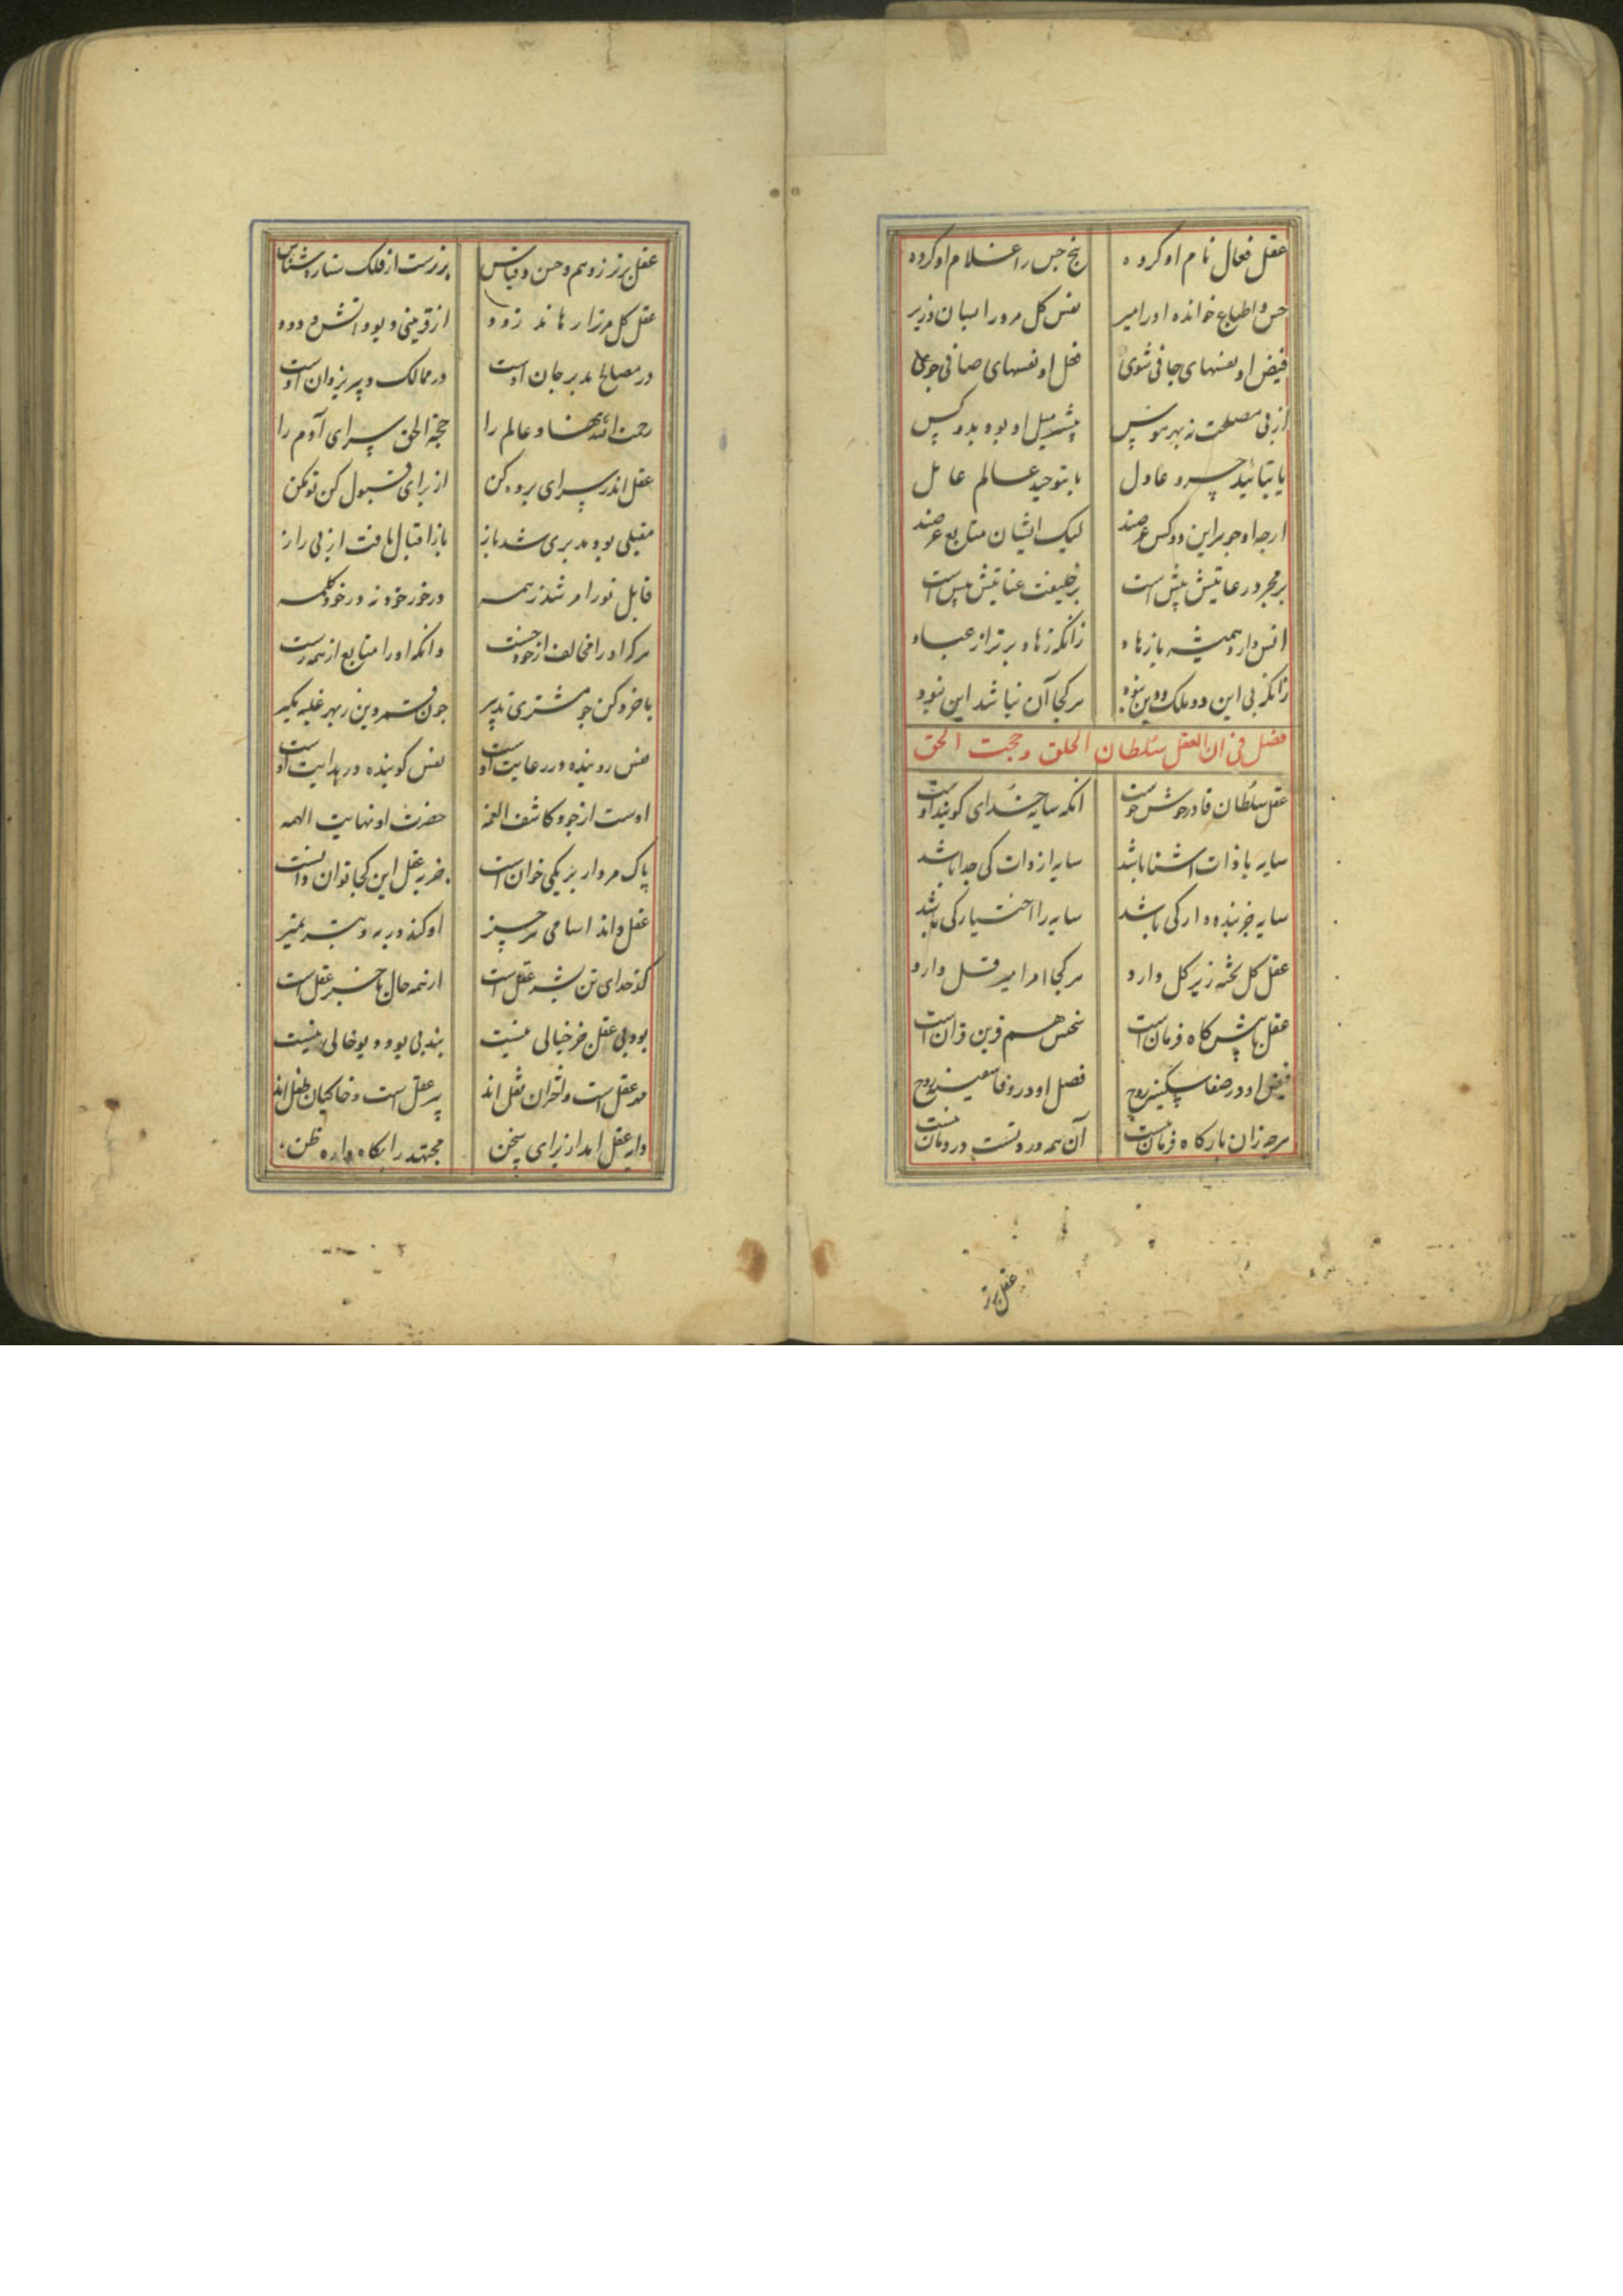 عقل فعال نام او کرده پنج حس را غلام او کرده
حس و اطباع خوانده او را امیر نفس کل مرورا بسان وزیر
فیض او نفسهای جافی شوی فعل او نفسهای صافی جوی
از پی مصلحت نه بهر هوس پیش میل او بود بدو کس
یا بتائید خسرو عادل یا بتوحید عالم عامل
ارچه او جوهر این دو کس عرضند لیک ایشان متابع غرضند
بر مجرد رعایتش پیش است بر خلیفت عنایتش بیش است
انس دارد همیشه با زهاد زانکه زهاد برتر از عباد
زانکه بی این دو ملک و دین نبود هرکجا آن نباشد این نبود
فصل فی ان العقل سلطان الخلق و حجت الحق
عقل سلطان قادر خوش خوست آنکه سایه خدای گویند اوست
سایه با ذات آشنا باشد سایه از ذات کی جدا باشد
سایه جز بنده وار کی باشد سایه را اختیار کی باشد
عقل کل تخته زیر کل دارد هرکجا امر امیر قل دارد
عقل با پیش کاه فرمان است نحس هم قرین قران است
فیض او در صفا سکینه روح فضل او در وفا سفینه روح
هرچه زان بارکاه فرمان نیست آن همه درد تست درمان نیست
عقل برتر
عقل برتر ز وهم و حس و قیاس برترست از فلک ستاره شناس
عقل کل مرترا رهاند زود از قرینی دیو و آتش و دود
در مصالح مدبر جان اوست در ممالک دبیر یزدان اوست
رحمت الله نهاد عالم را حجة الحق سرای آدم را
عقل اندر سرای برده کن از برای قبول کن نو کن
مقبلی بود مدبری شد باز باز اقبال یافت از پی راز
قابل نور امر شد ز همه درخور خود نه درخور کلمه
هرکه او را مخالف از خود جست وانکه او را متابع از همه رست
با خرد کن چو مشتری تدبیر چون قمر وین ز بهر غلبه مکیر
نفس روینده در رعایت اوست نفس کوینده در هدایت اوست
اوست از جود کاشف الغمه حضرت او نهایت الهمه
پاک مردار بر یکی خوان است جز به عقل این کجا توان دانست
عقل داند اسامی هر چیز او کند در به و بتر تمییز
کدخدای تن بشر عقل است از همه حال با خبر عقل است
بود بی عقل جز خیالی نیست بند بی بود دیو خالی نیست
مه عقل است و اختران ثقل اند پیر عقل است و خاکیان طفل اند
دایه عقل آمد از برای سخن مجتهد را بکاه دادن ظن